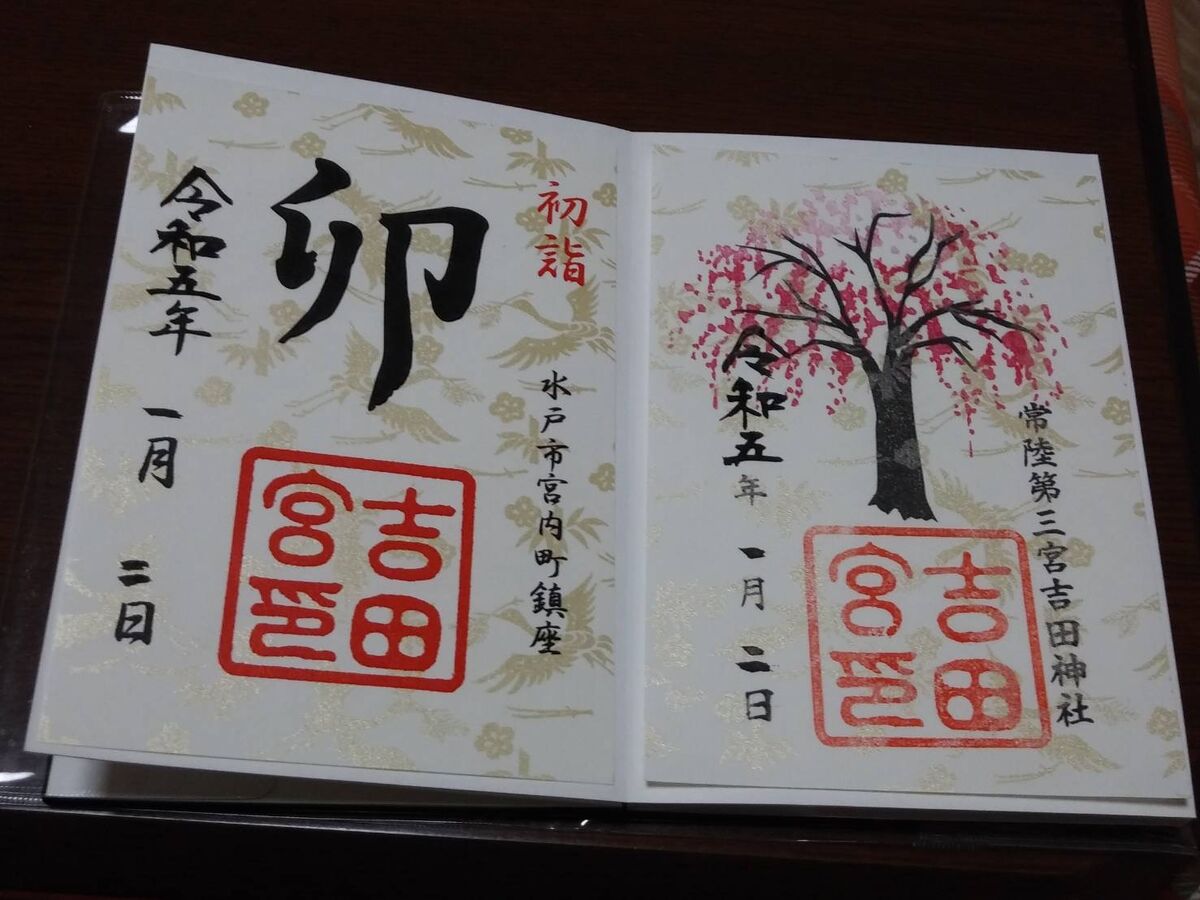 初詣
水戸市宮内町鎮座
卯
吉田
宮印
令和五年
一月
二日
常陸第三宮吉田神社
吉田
宮印
令和五年
一月
二日